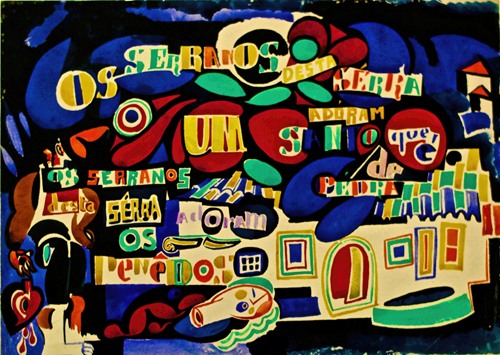 OS SERRANOS DESTA SÉRRA
ADORAM
UM SANTO que É
de
PEDRA
OS SERRANOS
desta SÉRRA ADORAM
OS
PENÊDOS